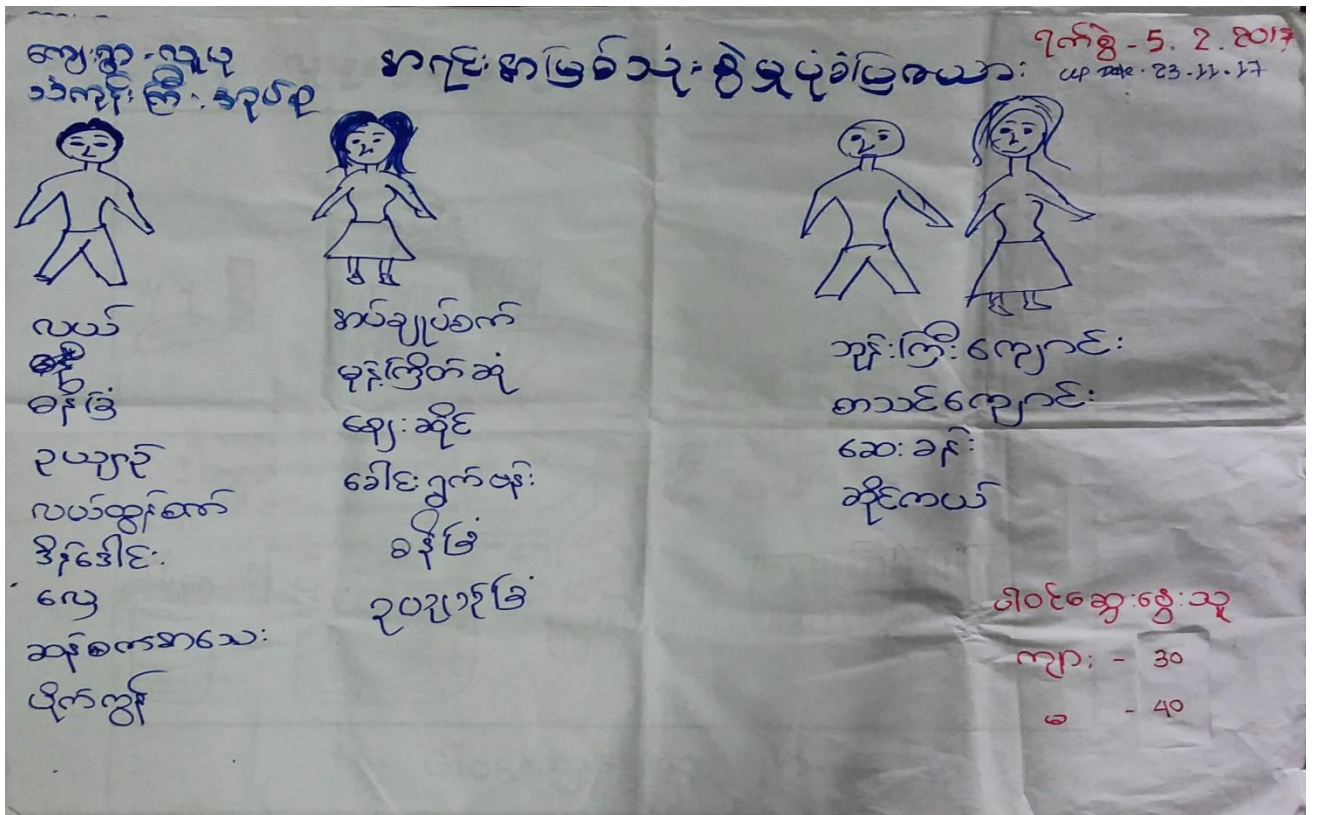 ကျေးရွာ - လူပု
သဲကုန်းကြီး အုပ်စု
အရင်းအမြစ်သုံးစွဲမှုပုံစံပြဇယား
ရက်စွဲ - 5. 2. 2017
up Date - 23-11-17
လယ်
ဓနိခြံ
ဥယျာဉ်
လယ်ထွန်စက်
ဒိန်ဒေါင်း
လှေ
ဆန်စက်အသေး
ပိုက်ကွန်
အပ်ချုပ်စက်
မုန့်ကြိတ်ဆုံ
ဈေးဆိုင်
ခေါင်းရွက်ဗန်း
ဓနိခြံ
ဥယျာဉ်ခြံ
ဘုန်းကြီးကျောင်း
စာသင်ကျောင်း
ဆေးခန်း
ဆိုင်ကယ်
ပါဝင်ဆွေးနွေးသူ
ကျား - 30
မ - 40